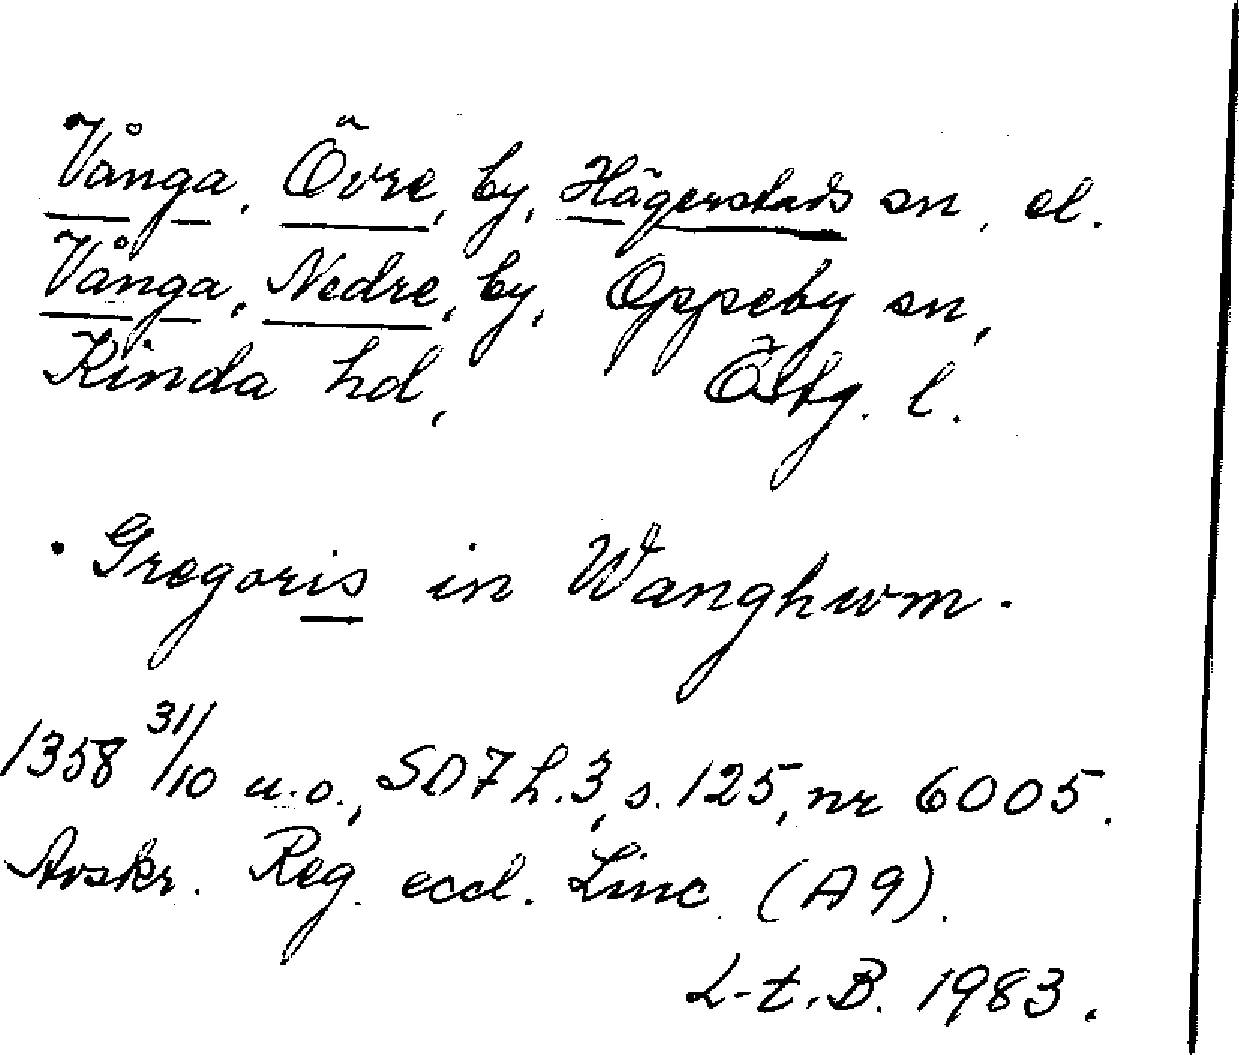 Vånga, Övre, by, Hägerstads sn, el.
Vånga, Nedre, by, Oppeby sn,
Kinda hd, Östg. l.
· Gregoris in Wanghwm.
1358 31/10 u.o., SD7 h.3, s. 125, nr 6005.
Avskr. Reg. eccl. Linc. (A9).
L-t. B. 1983.